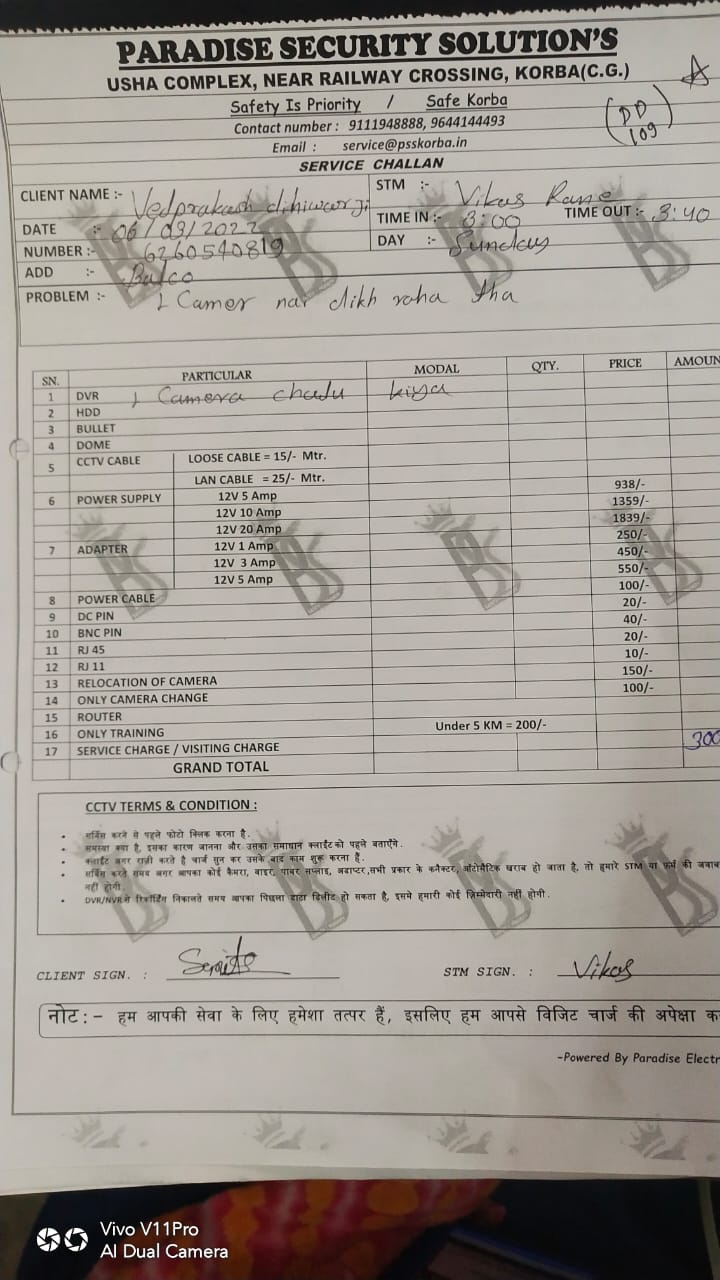 PARADISE SECURITY SOLUTION'S
USHA COMPLEX, NEAR RAILWAY CROSSING, KORBA(C.G.)
Safety Is Priority / Safe Korba
Contact number : 9111948888, 9644144493
Email : service@psskorba.in
DD 109
SERVICE CHALLAN
CLIENT NAME :- Vedprakash dihiwar ji
STM :- Vikas Rane
DATE :- 06/09/2022
TIME IN :- 3:00 TIME OUT :- 3:40
NUMBER :- 6260540819
DAY :- Sunday
ADD :- Balco
PROBLEM :- 1 Camer nai dikh raha tha
SN. PARTICULAR MODAL QTY. PRICE AMOUN
1 DVR 1 Camera chalu kiya
2 HDD
3 BULLET
4 DOME
5 CCTV CABLE LOOSE CABLE = 15/- Mtr.
LAN CABLE = 25/- Mtr.
6 POWER SUPPLY 12V 5 Amp 938/-
12V 10 Amp 1359/-
12V 20 Amp 1839/-
7 ADAPTER 12V 1 Amp 250/-
12V 3 Amp 450/-
12V 5 Amp 550/-
8 POWER CABLE 100/-
9 DC PIN 20/-
10 BNC PIN 40/-
11 RJ 45 20/-
12 RJ 11 10/-
13 RELOCATION OF CAMERA 150/-
14 ONLY CAMERA CHANGE 100/-
15 ROUTER
16 ONLY TRAINING
17 SERVICE CHARGE / VISITING CHARGE Under 5 KM = 200/- 300
GRAND TOTAL
CCTV TERMS & CONDITION :
• सर्विस करने से पहले फोटो क्लिक करना है.
• समस्या क्या है, इसका कारण जानना और उसका समाधान क्लाईंट को पहले बताएँगे.
• क्लाईंट अगर राज़ी करते है चार्ज सुन कर उसके बाद काम शुरू करना हैं.
• सर्विस करते समय अगर आपका कोई कैमरा, वाइर, पावर सप्लाइ, अडाप्टर,सभी प्रकार के कनैक्टर, ऑटोमैटिक खराब हो जाता है, तो हमारे STM या फ़र्म की जवाब
नहीं होगी.
• DVR/NVR से रिकॉर्डिंग निकालते समय आपका पिछला डाटा डिलीट हो सकता है, इसमे हमारी कोई ज़िम्मेदारी नहीं होगी.
CLIENT SIGN. :
STM SIGN. : Vikas
नोट:- हम आपकी सेवा के लिए हमेशा तत्पर हैं, इसलिए हम आपसे विजिट चार्ज की अपेक्षा क
-Powered By Paradise Electr
Vivo V11Pro
AI Dual Camera